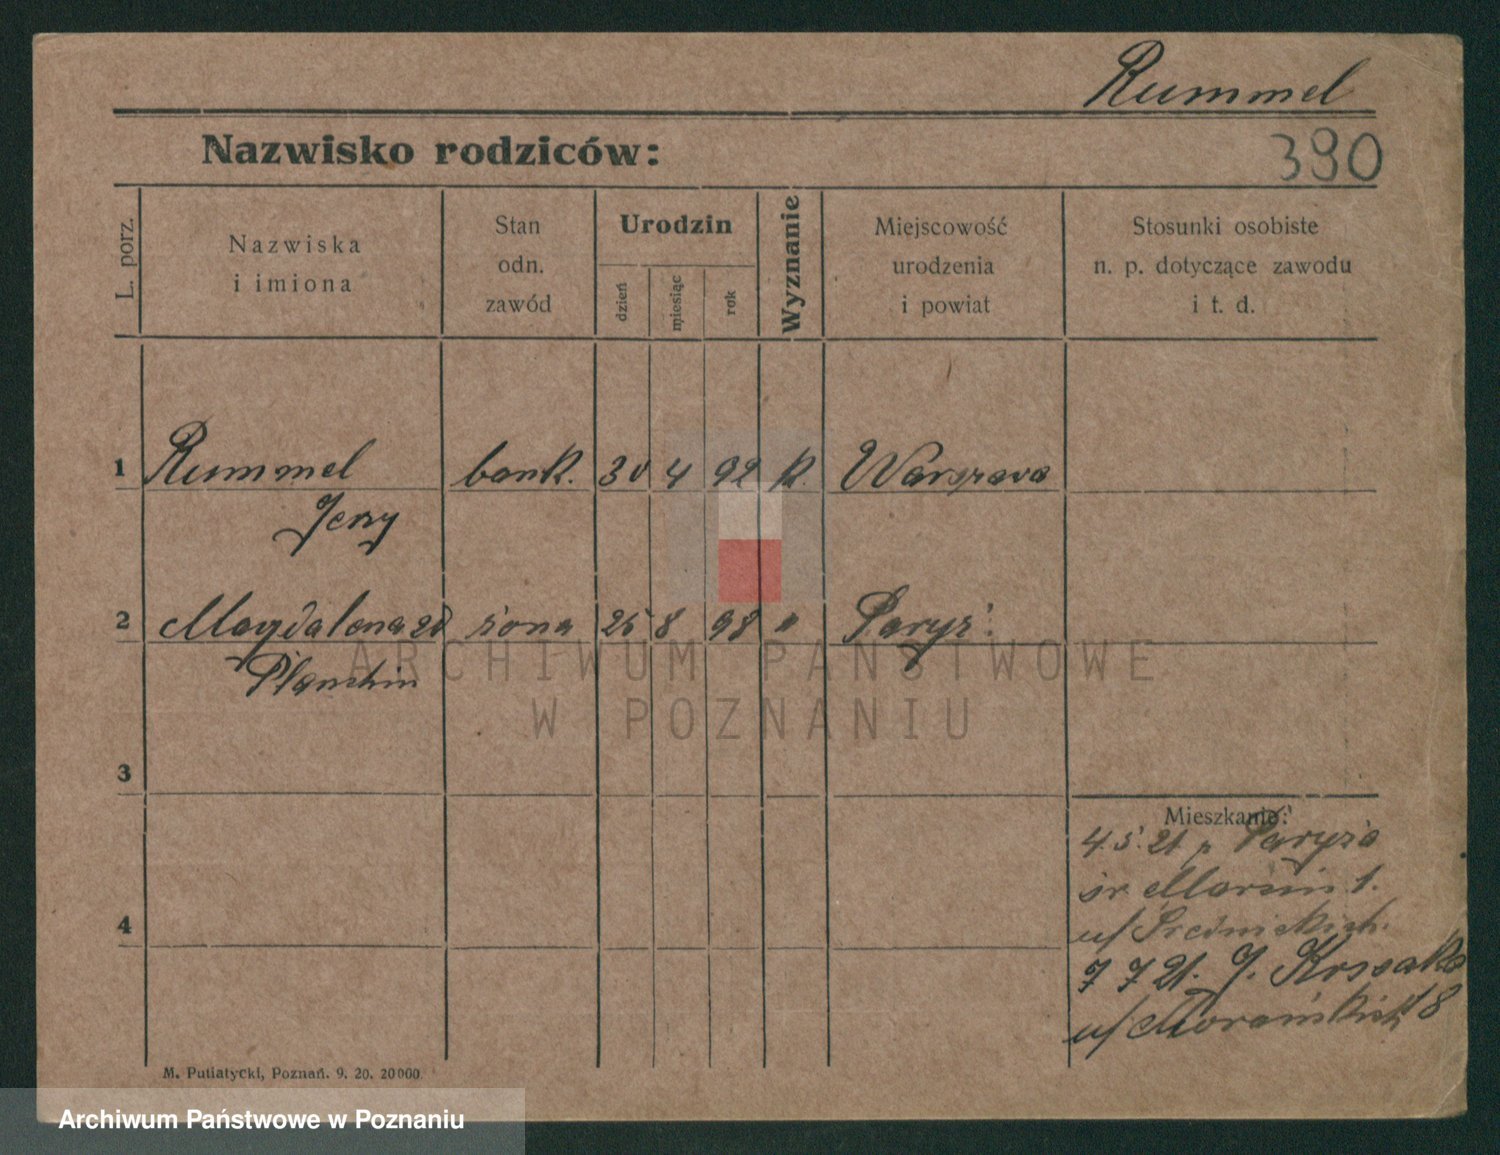 Rummel
Nazwisko rodziców:
390
L. porz.
Nazwiska
i imiona
Stan
odn.
zawód
Urodzin
dzień
miesiąc
rok
Wyznanie
Miejscowość
urodzenia
i powiat
Stosunki osobiste
n. p. dotyczące zawodu
i t. d.
1 Rummel bank. 30 4 92 k. Warszawa
Jerzy
2 Magdalena zd żona 25 8 98 " Paryż.
Planchin
ARCHIWUM PAŃSTWOWE
W POZNANIU
3
Mieszkanie:
4.5.21 z Paryża
św. Marcin 1.
4
u/ Średnickich.
7 7 21. J. Kossaka 8
u/ Morańskich
M. Putiatycki, Poznań. 9. 20. 20000.
Archiwum Państwowe w Poznaniu